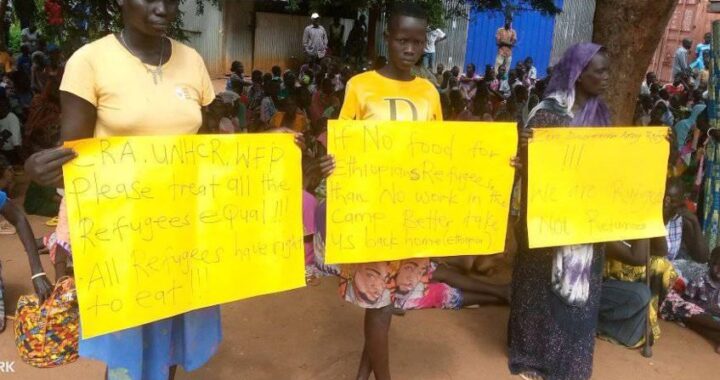 CRA. UNHCR. WFP
Please treat all the
Refugees equal!!!
All Refugees have right
to eat!!!
D
If No food for
Ethiopians Refugees
than No work in the
Camp Better take
us back home(ethiopia)
!!!
We are Refugee
Not Returnee
RK